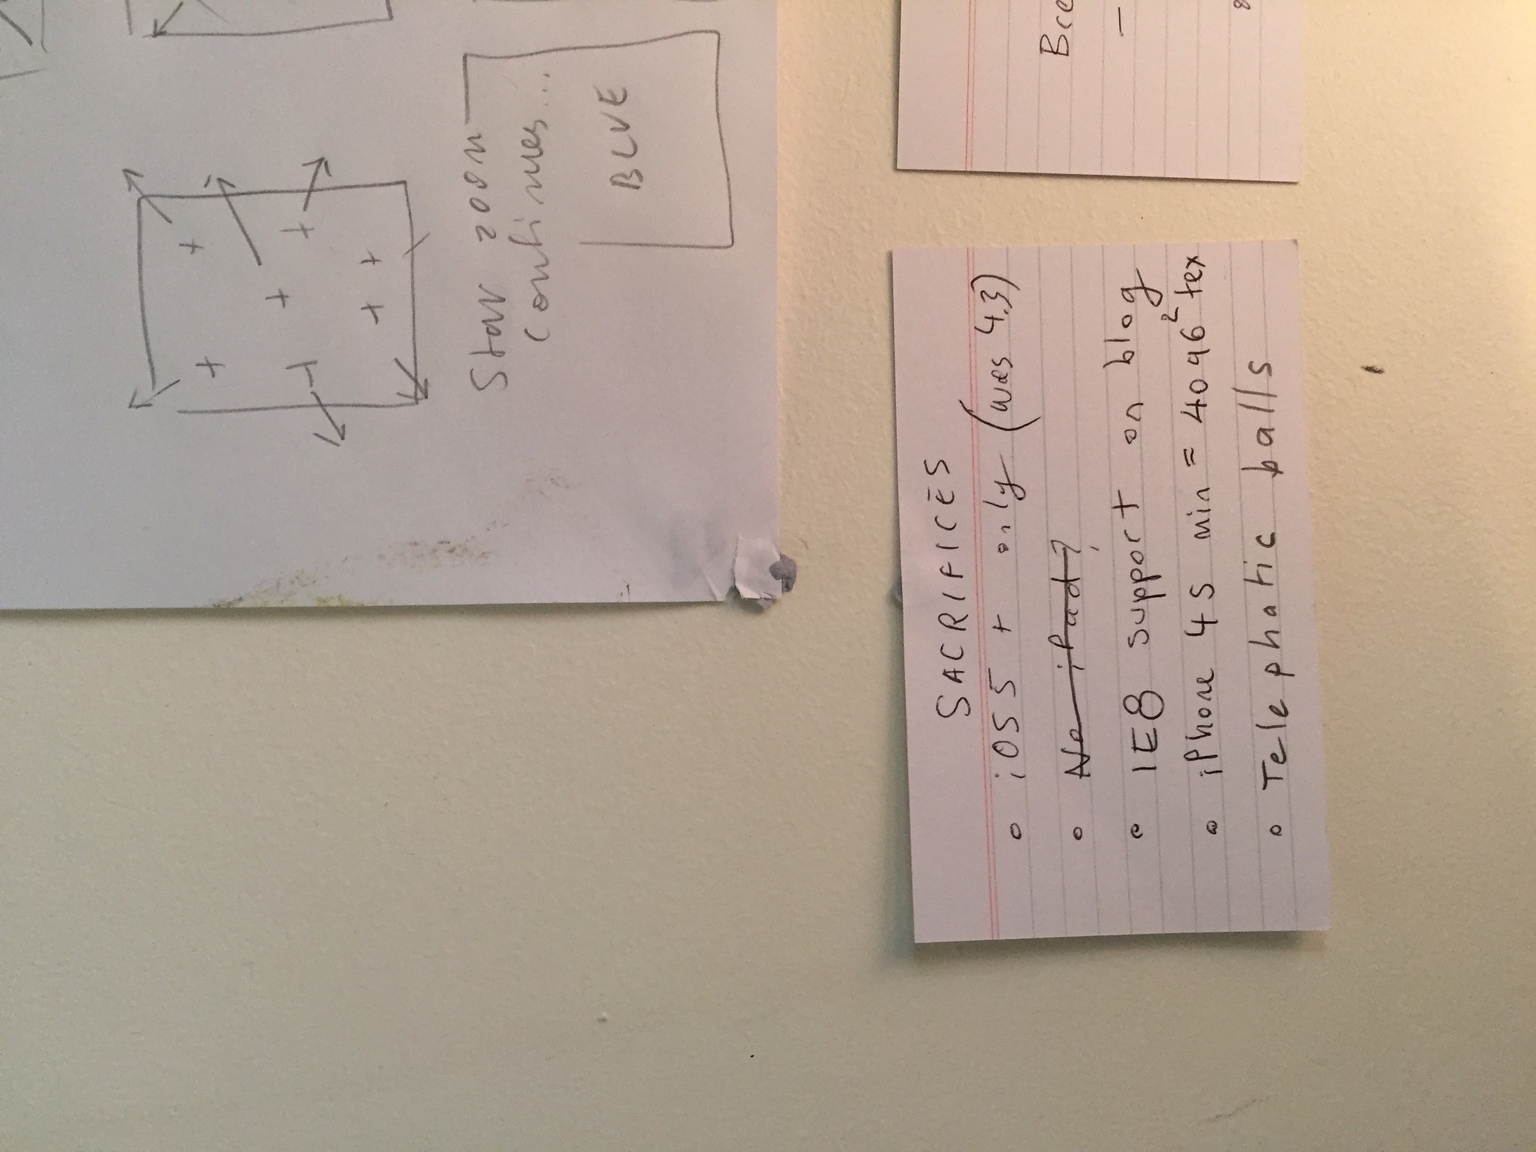 Star zoom
continues...
BLUE
SACRIFICES
• iOS 5 + only (was 4.3)
• No iPad?
• IE8 support on blog
• iPhone 4S min = 4096² tex
• Telephatic balls
Bre
–
8